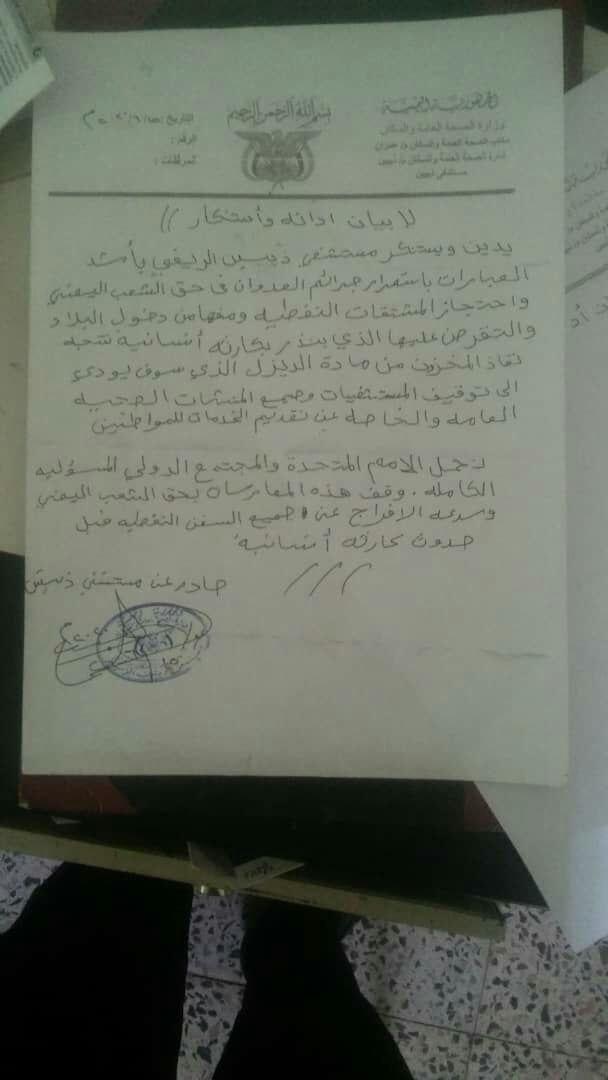 الجمهورية اليمنية
وزارة الصحة العامة والسكان
مكتب الصحة العامة والسكان م/ عمران
ادارة الصحة العامة والسكان م/ ذيبين
مستشفى ذيبين
بسم الله الرحمن الرحيم
التاريخ:
الرقم:
المرفقات:
// بيان ادانه وأستنكار //
يدين ويستنكر مستشفى ذيبين الريفي بأشد
العبارات باستمرار جرائم العدوان في حق الشعب اليمني
واحتجاز المشتقات النفطيه ومنعها من دخول البلاد
والتقرصن عليها الذي ينذر بكارثه أنسانية نتيجه
نفاذ المخزون من مادة الديزل الذي سوف يودي
الى توقيف المستشفيات وجميع المنشات الصحيه
العامه والخاصه عن تقديم الخدمات للمواطنين
نحمل الامم المتحدة والمجتمع الدولي المسؤليه
الكامله. وقف هذه الممارسات بحق الشعب اليمني
وسرعه الافراج عن جميع السفن النفطيه قبل
حدوث كارثه أنسانية.
صادر عن مستشفى ذيبين